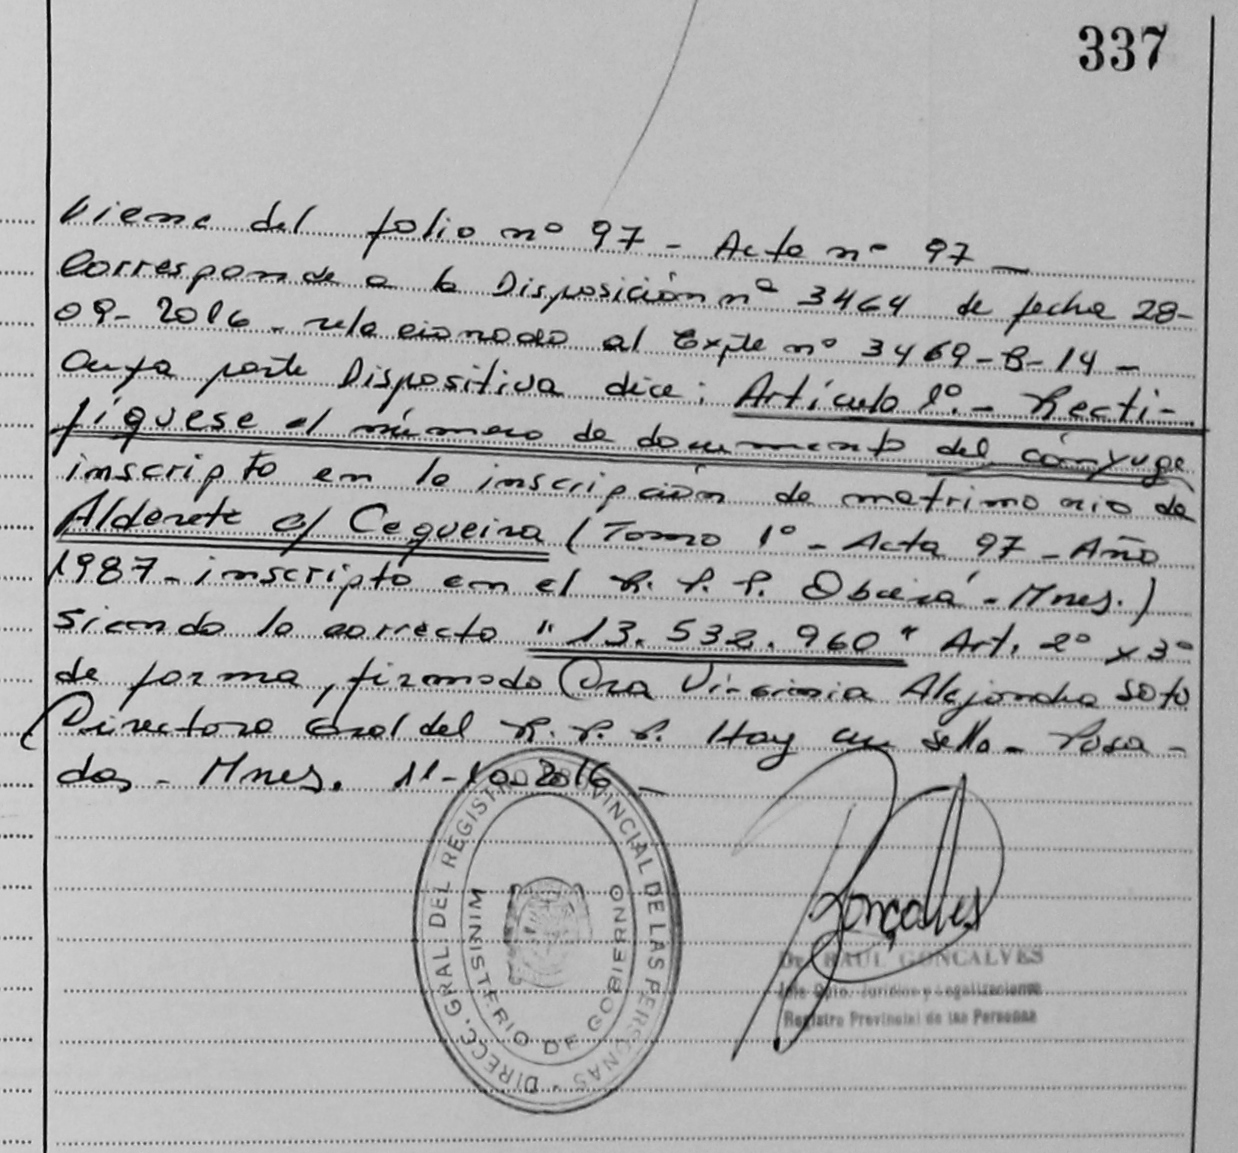 337
Viene del folio nº 97 - Acta nº 97 -
Corresponde a la Disposición nº 3464 de fecha 28-
09-2016 - relacionado al Expte nº 3469-B-14 -
Cuya parte Dispositiva dice: Artículo 1º.- Recti-
fíquese el número de documento del cónyuge
inscripto en la inscripción de matrimonio de
Alderete c/ Cequeira (Tomo 1º - Acta 97 - Año
1987 - inscripto en el R. P. P. Oberá - Mnes.)
Siendo lo correcto "13.532.960" Art. 2º y 3º
de forma, firmado Dra Virginia Alejandra Soto
Directora Gral del R. P. P. Hay un sello - Posa-
das - Mnes. 11-10-2016 -
DIRECC. GRAL. DEL REGISTRO PROVINCIAL DE LAS PERSONAS
MINISTERIO DE GOBIERNO
Gonçalves
Dr. RAUL GONCALVES
Jefe Dpto. Jurídico y Legalizaciones
Registro Provincial de las Personas